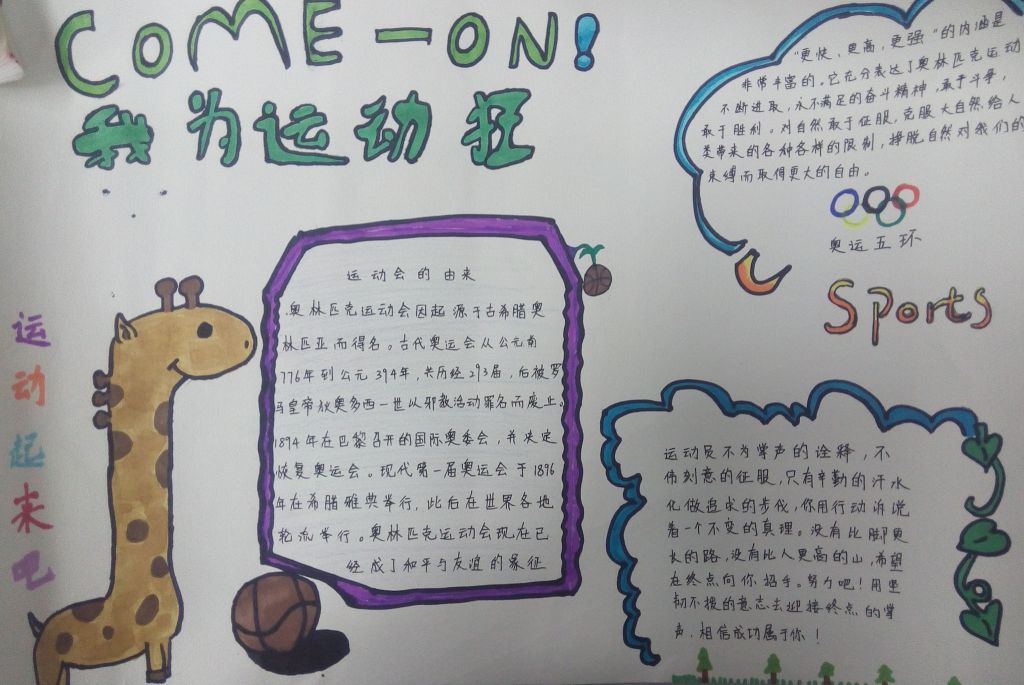 COME-ON!
我为运动狂
"更快、更高、更强"的内涵是
非常丰富的。它充分表达了奥林匹克运动
不断进取，永不满足的奋斗精神，敢于斗争，
敢于胜利。对自然敢于征服，克服大自然给人
类带来的各种各样的限制，挣脱自然对我们的
束缚而取得更大的自由。
奥运五环
Sports
运动会的由来
奥林匹克运动会因起源于古希腊奥
林匹亚而得名。古代奥运会从公元前
776年到公元394年，共历经293届，后被罗
马皇帝狄奥多西一世以邪教活动罪名而废止。
1894年在巴黎召开的国际奥委会，并决定
恢复奥运会。现代第一届奥运会于1896
年在希腊雅典举行，此后在世界各地
轮流举行。奥林匹克运动会现在已
经成了和平与友谊的象征
运动起来吧
运动员不为掌声的诠释，不
伟刻意的征服，只有辛勤的汗水
化做追求的步伐，你用行动诉说
着一个不变的真理。没有比脚更
长的路，没有比人更高的山，希望
在终点向你招手。努力吧！用坚
韧不拔的意志去迎接终点的掌
声，相信成功属于你！